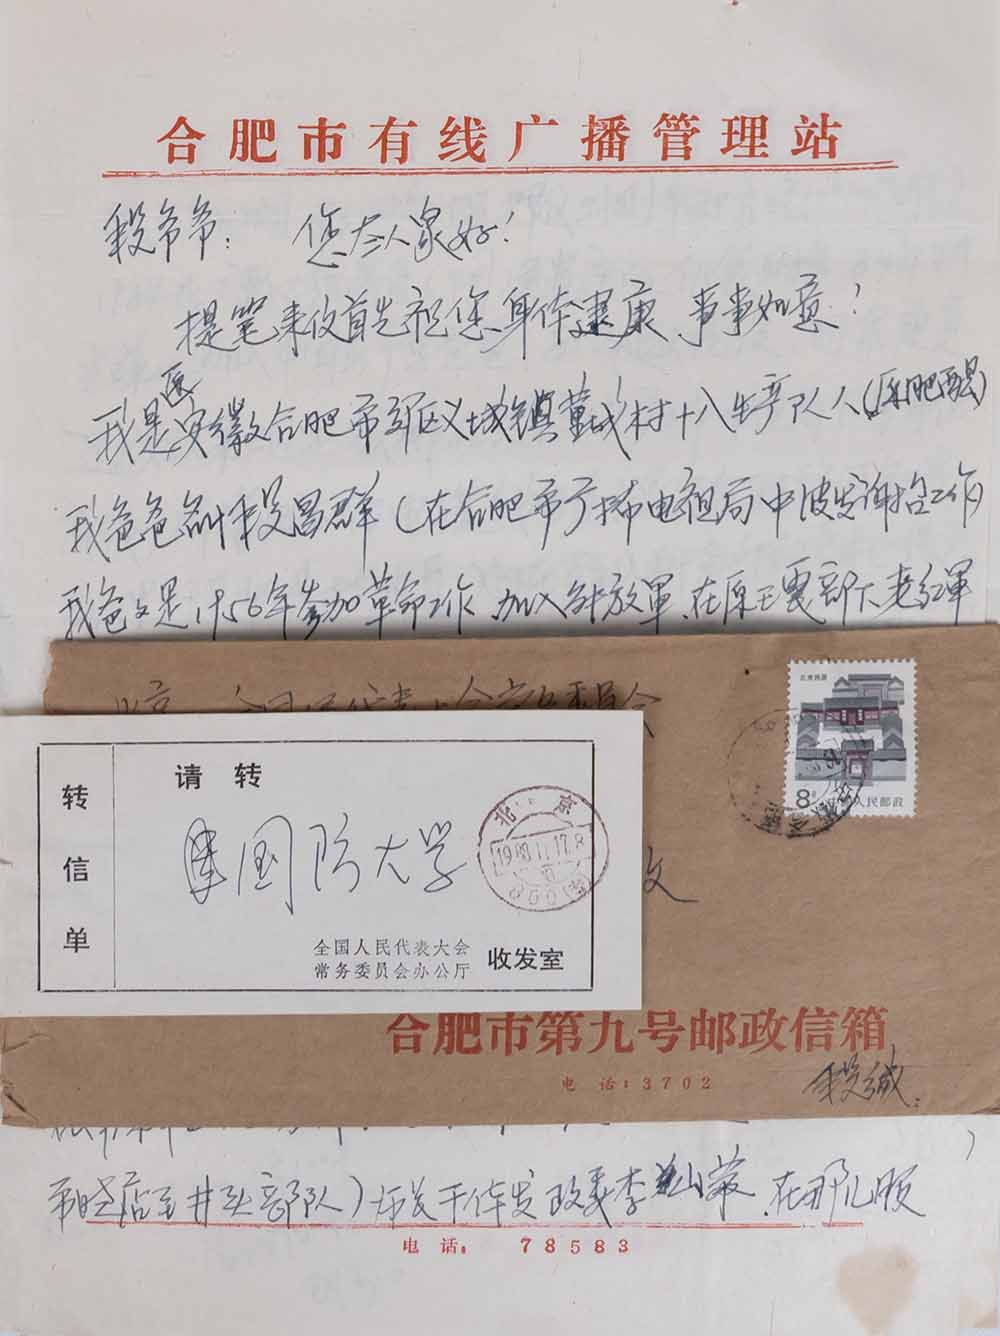 合肥市有线广播管理站
段爷爷：您老人家好！
提笔来仅首先祝您身体健康、事事如意！
原
我是安徽合肥市郊区义城镇董城村十八生产队人（原肥西县）
我爸爸叫段昌群（在合肥市广播电视局中波发射台工作）
我爸爸是1956年参加革命工作 加入解放军、在原王震部下老红军
8分 中国人民邮政
转信单
请转
国防大学
北京
1988.11.17.8
全国人民代表大会
常务委员会办公厅
收发室
文
合肥市第九号邮政信箱
电话：3702
段缄
部队）
在那儿
电话：78583